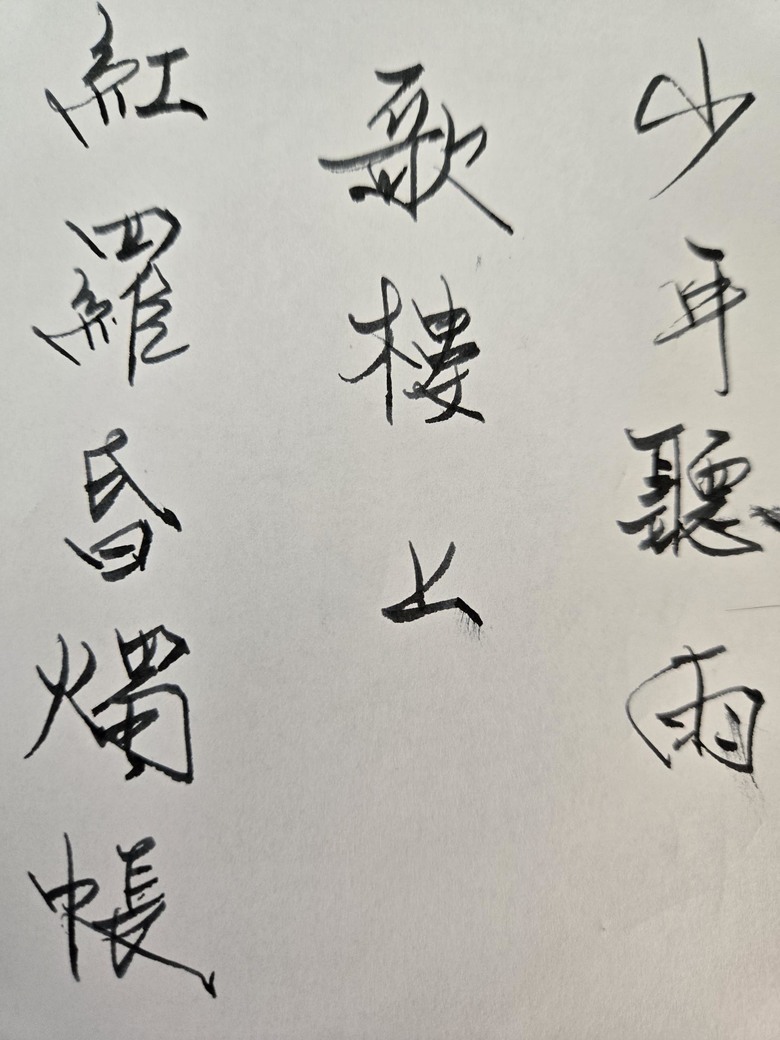 少年聽雨
歌樓上
紅羅昏燭帳